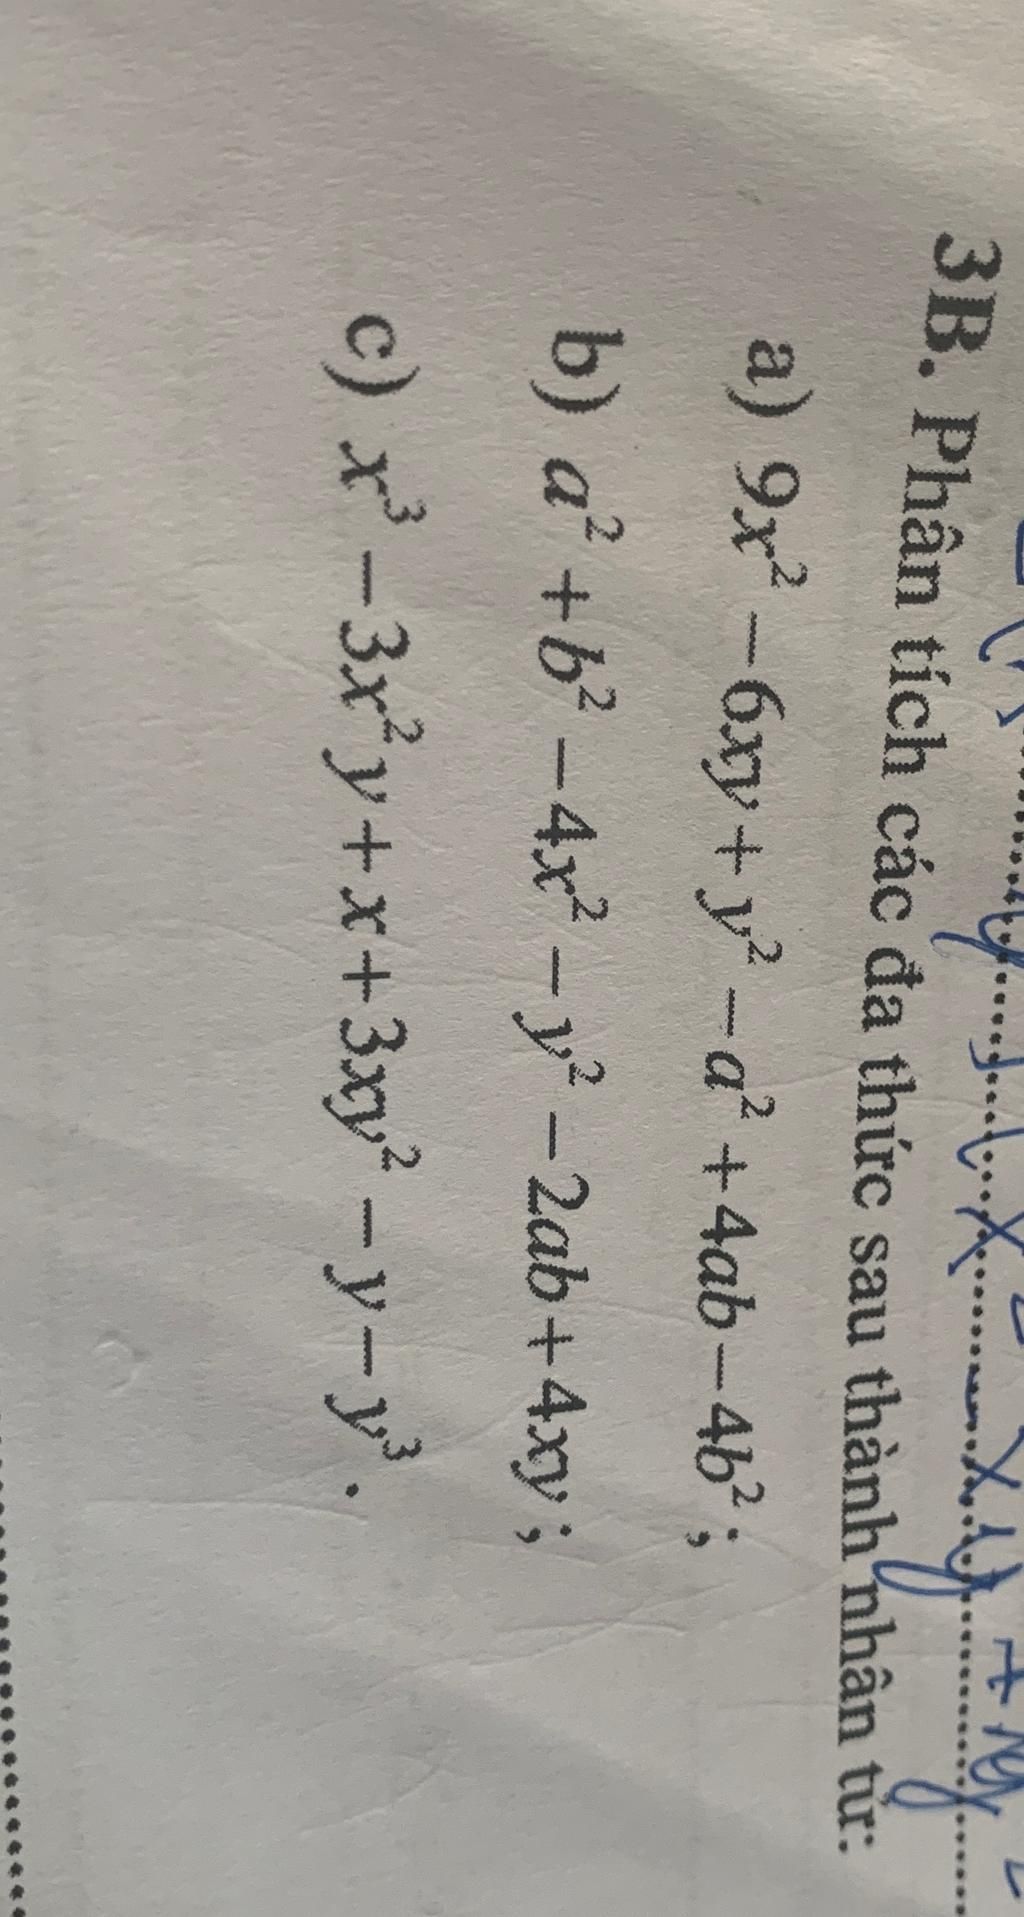 3B. Phân tích các đa thức sau thành nhân tử:
a) 9x² − 6xy + y² − a² + 4ab − 4b²;
b) a² + b² − 4x² − y² − 2ab + 4xy;
c) x³ − 3x²y + x + 3xy² − y − y³.